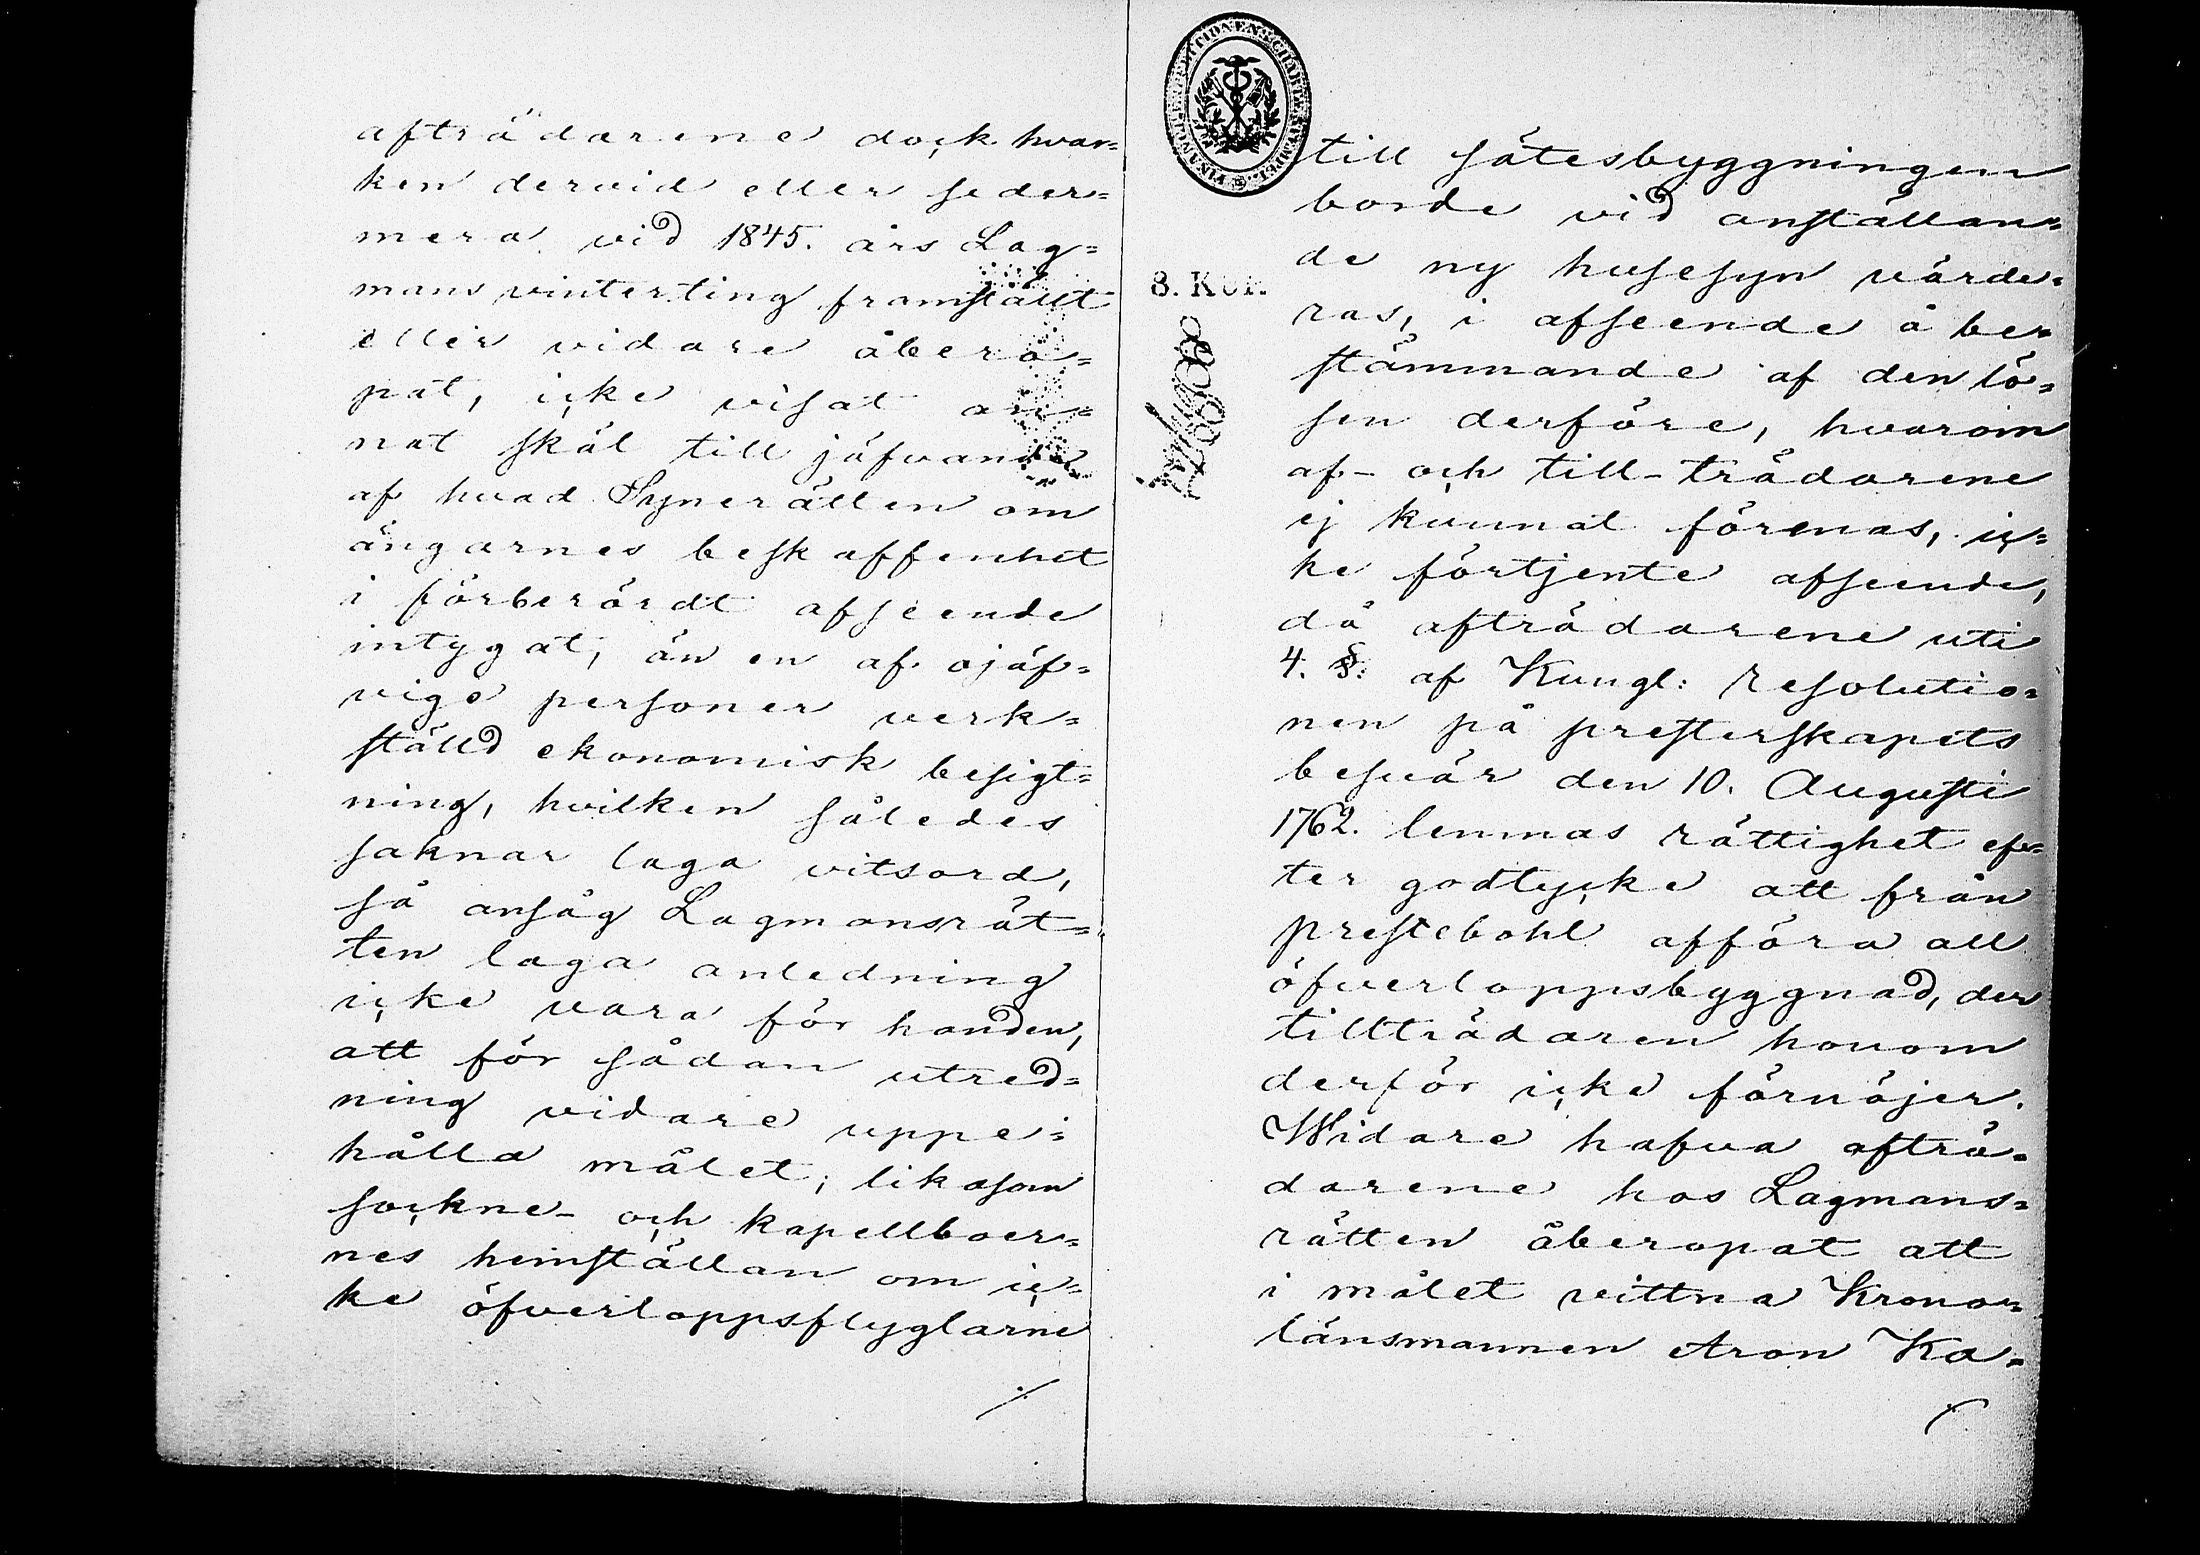 afträdarene dock hvar=
ken dervid eller seder=
mera vid 1845. års Lag=
mans vinterting framstält
eller vidare åbero=
pat, icke visat an=
nat skäl till jäfvande
af hvad Synerätten om
ängarnes beskaffenhet
i förberördt afseende
intygat, än en af ojäf=
viga personer verk=
ställd ekonomisk besigt=
ning, hvilken således
saknar laga vitsord,
så ansåg Lagmansrät=
ten laga anledning
icke vara för handen,
att för sådan utred=
ning vidare uppe=
hålla målet; likasom
sockne- och kapellboer=
nes hemställan om ic=
ke öfverloppsflyglarne
8. Kop.
till sätesbyggningen
borde vid anställan=
de ny husesyn värde=
ras, i afseende å be=
stämmande af den lö=
sen derföre, hvarom
af- och till-trädarene
ej kunnat förenas, ic=
ke förtjente afseende,
då afträdarene uti
4. §: af Kungl: Resolutio=
nen på presterskapets
besvär den 10. Augusti
1762. lemnas rättighet ef=
ter godtycke att från
prestebohl afföra all
öfverloppsbyggnad, der
tillträdaren honom
derför icke förnöjer.
Widare hafva afträ=
darene hos Lagmans=
rätten åberopat att
i målet vittna Krono=
länsmannen Aron Ka=